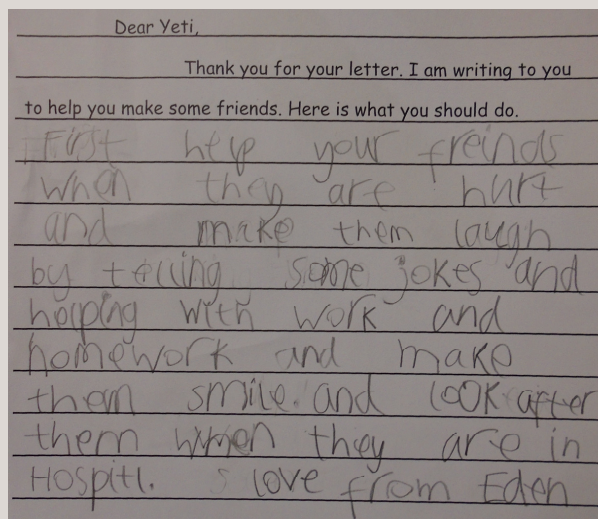 Dear Yeti,
Thank you for your letter. I am writing to you
to help you make some friends. Here is what you should do.
First help your freinds
when they are hurt
and make them laugh
by telling some jokes and
helping with work and
homework and make
them smile. and look after
them when they are in
Hospitl. love from Eden